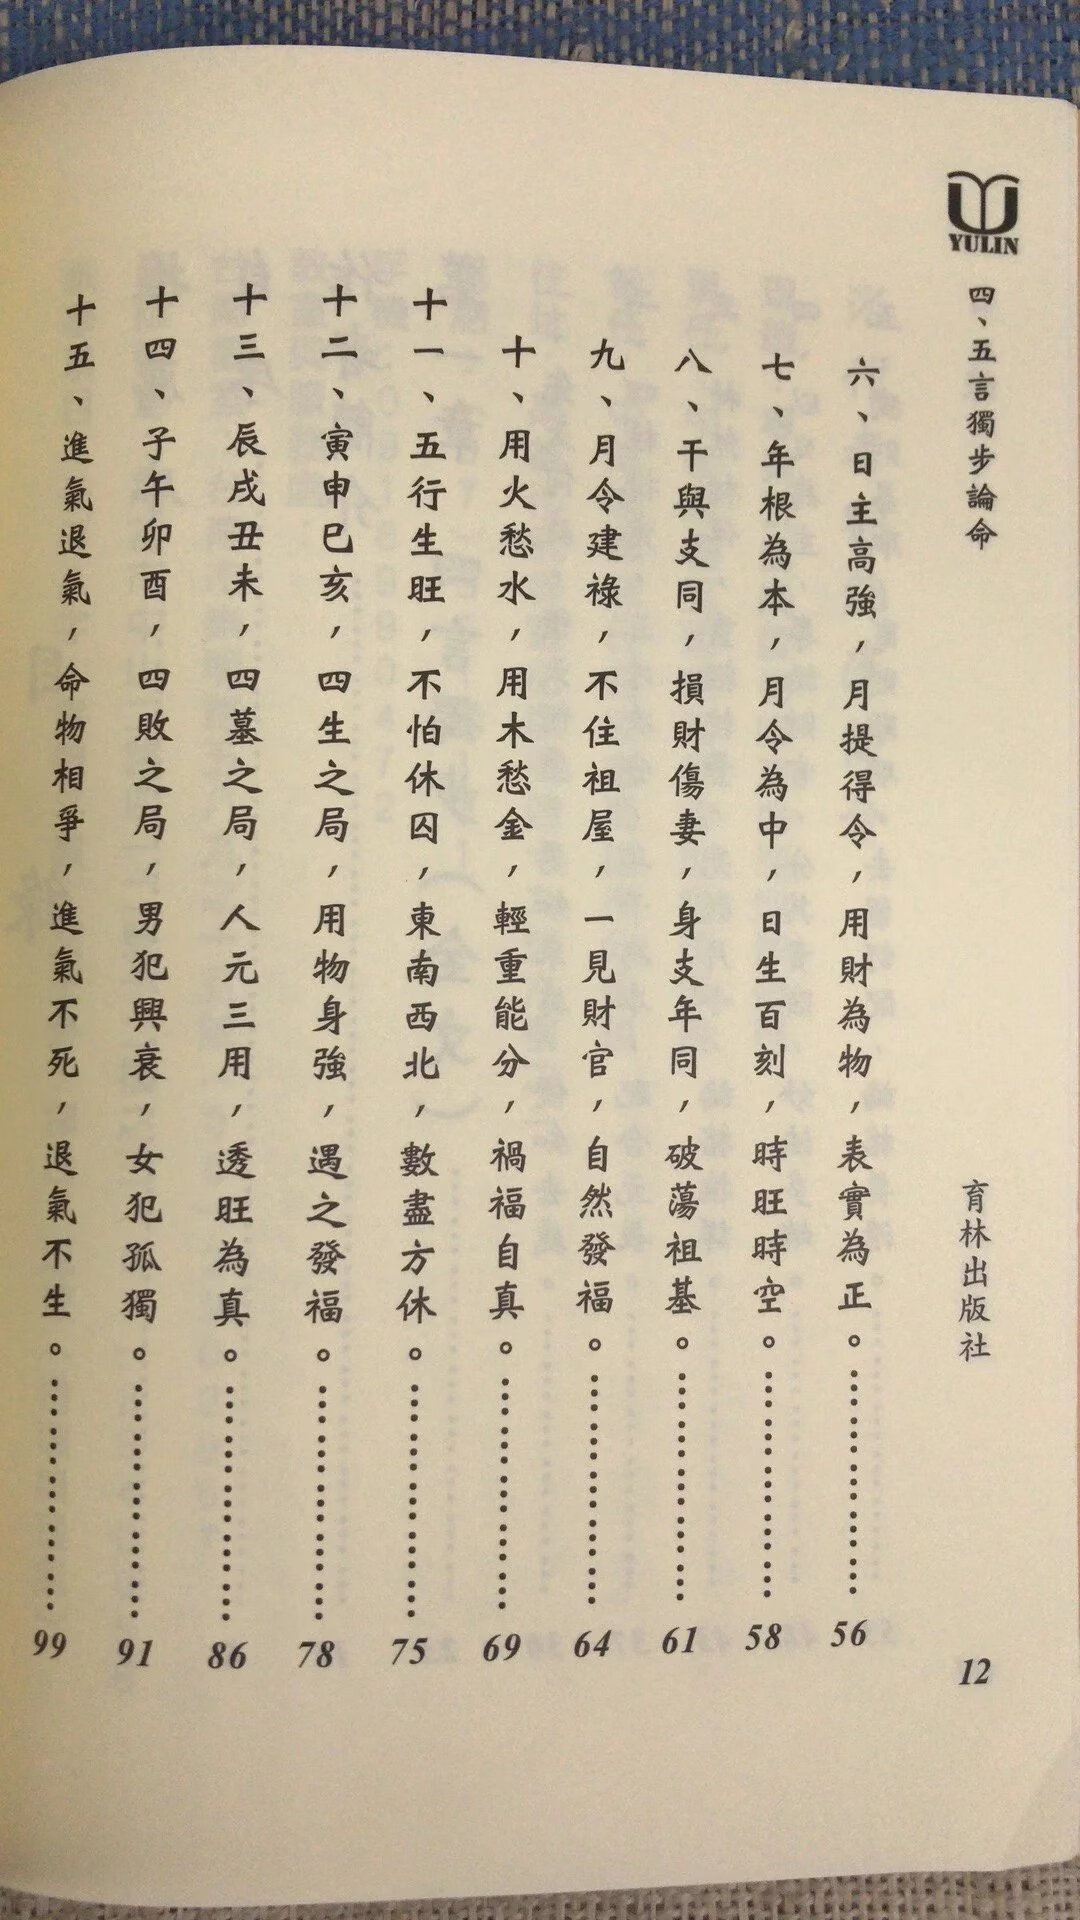 YULIN
四、五言獨步論命
育林出版社
12
六、日主高強，月提得令，用財為物，表實為正。 56
七、年根為本，月令為中，日生百刻，時旺時空。 58
八、干與支同，損財傷妻，身支年同，破蕩祖基。 61
九、月令建祿，不住祖屋，一見財官，自然發福。 64
十、用火愁水，用木愁金，輕重能分，禍福自真。 69
十一、五行生旺，不怕休囚，東南西北，數盡方休。 75
十二、寅申巳亥，四生之局，用物身強，遇之發福。 78
十三、辰戌丑未，四墓之局，人元三用，透旺為真。 86
十四、子午卯酉，四敗之局，男犯興衰，女犯孤獨。 91
十五、進氣退氣，命物相爭，進氣不死，退氣不生。 99